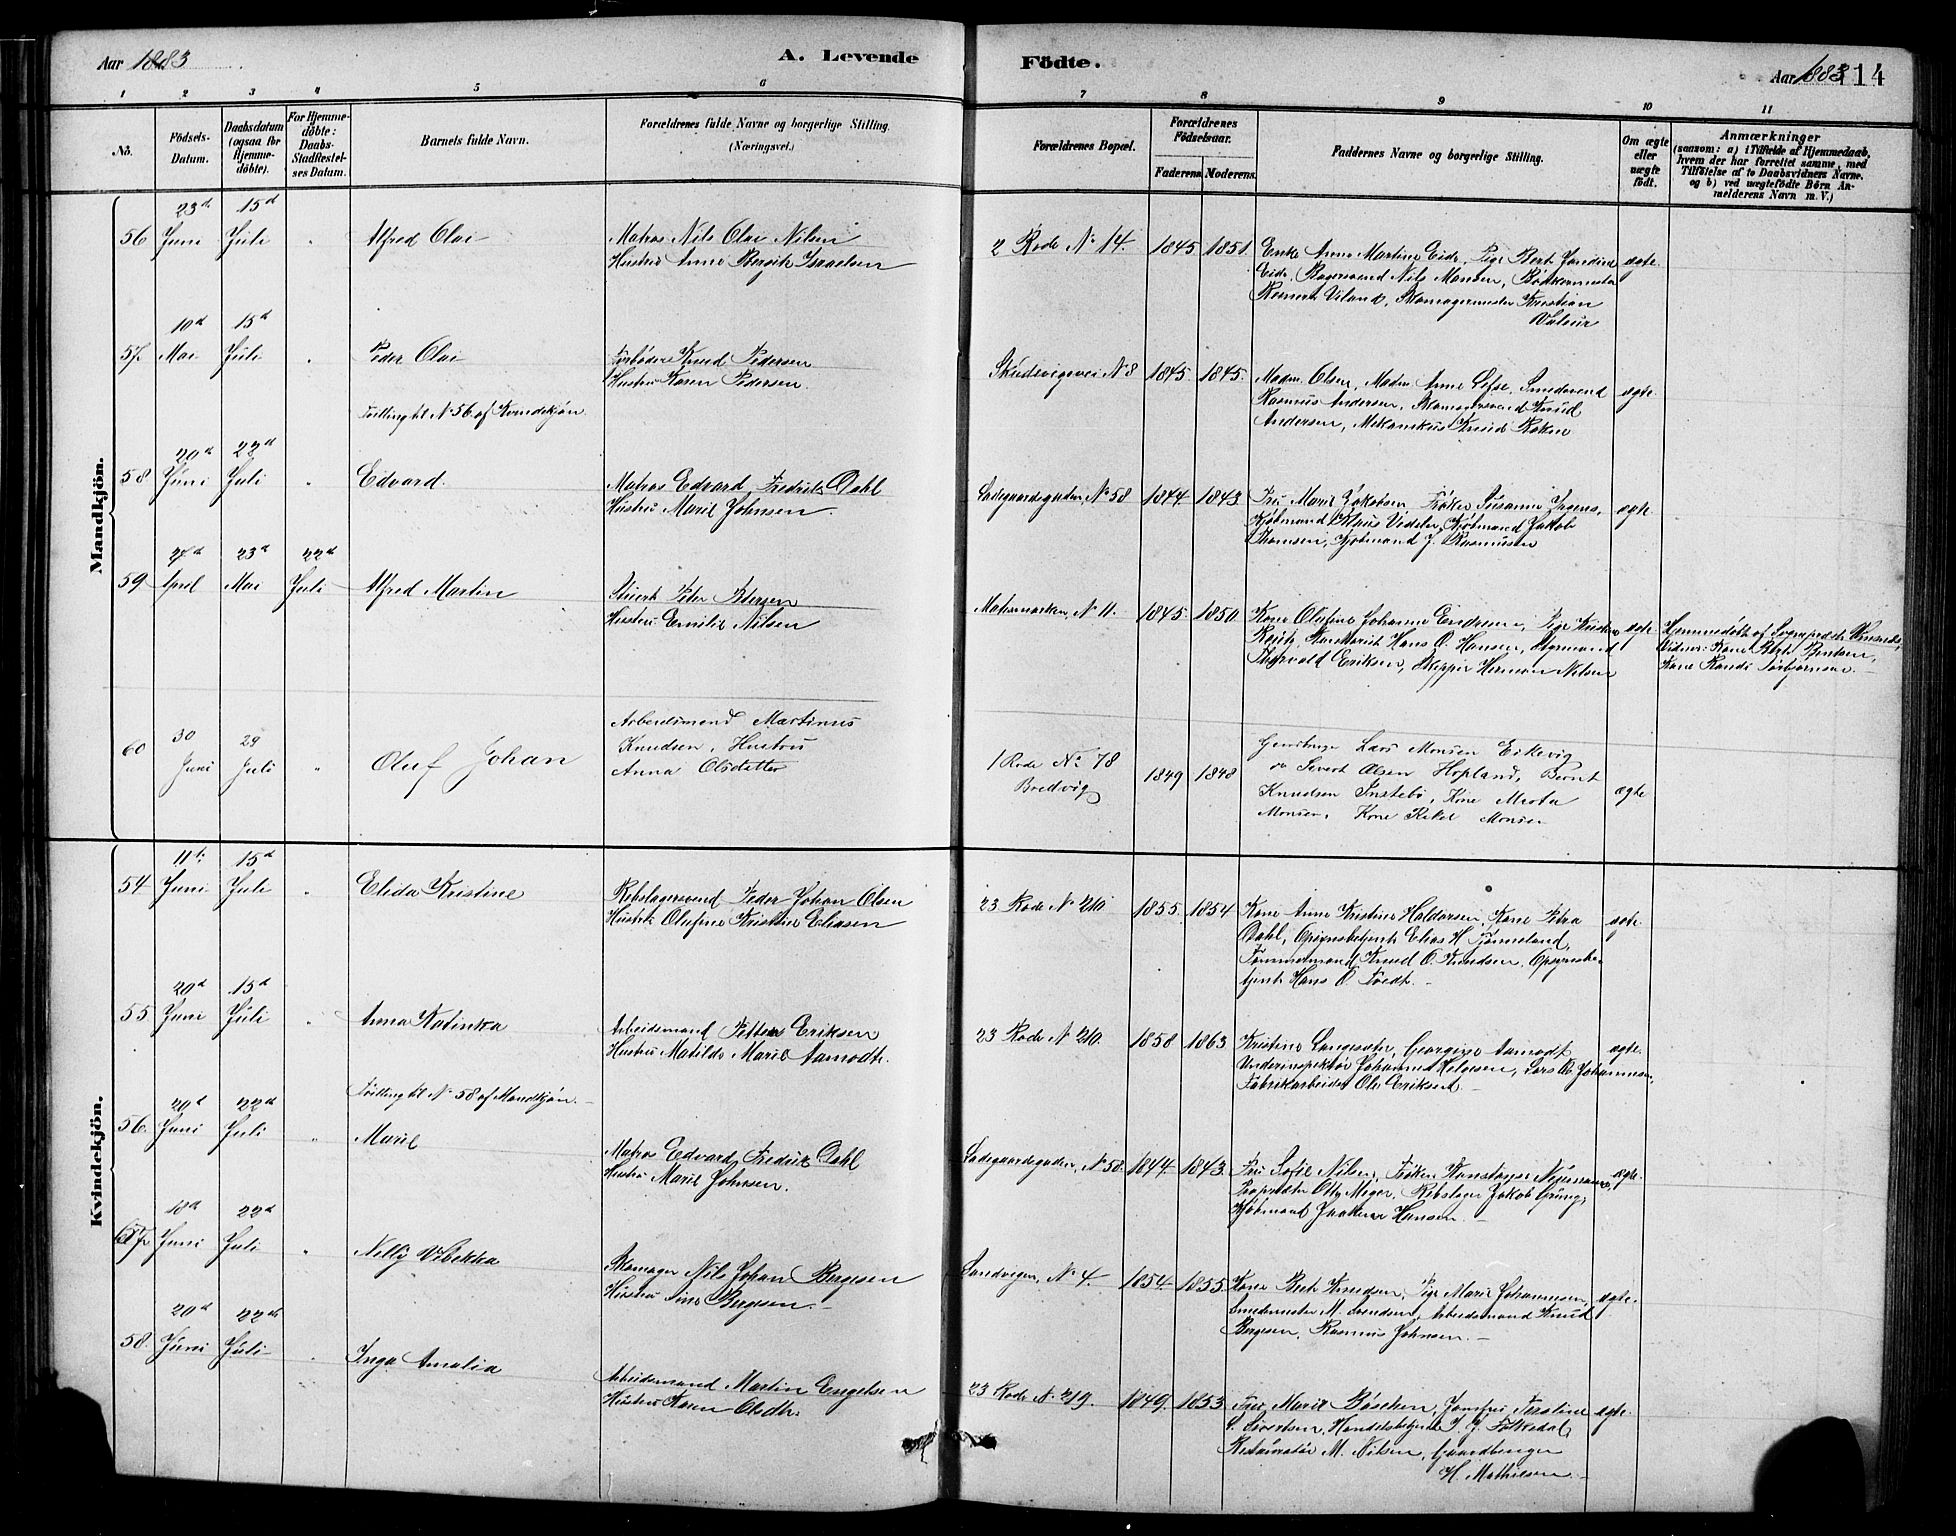 Aar 1883
A. Levende Födte.
Aar 1883 114
1 2 3 4 5 6 7 8 9 10 11
Nô.
Födsets-Datum.
Daabsdatum (ogsaa for Hjemme-döbte).
For Hjemme-döbte: Daabs-Stadfæstel-ses Datum.
Barnets fulde Navn.
Forældrenes fulde Navne og borgerlige Stilling.
(Næringsvei.)
Forældrenes Bopæl.
Forældrenes Födselsaar.
Faderens. Moderens.
Faddernes Navne og borgerlige Stilling.
Om ægte eller uægte födt.
Anmærkninger
(saasom: a) i Tilfælde af Hjemmedaab,
hvem der har forrettet samme, med
Tilföielse af to Daabsvidners Navne.
og b) ved uægtefödte Börn An-
melderens Navn m. V.)
Mandkjön.
56 23d Juni 15d Juli " Alfred Olai
Matros Nils Olai Nilsen
Hustru Anne Bergite Israelsen
2 Rode No 14. 1845 1851.
Enke Anna Martine Eide, Pige Bert Jondine
Eide, Bagersvend Nils Monsen, Bödkermester
Viland, Skomagermester Kristian
Valeur
ægte.
57. 10d Mai 15d Juli " Peder Olai
Knud Pedersen
Hustru Karen Pedersen.
Skudevigsvei N 8 1845. 1845.
Madm. Olsen, Madm. Anne Smedsvend
Rasmus Andersen, Knud
Andersen, Mekanikus Knud
ægte.
Tvilling til No 56 af Kvindekjön.
58 20d Juni 22d Juli " Edvard.
Matros Edvard Fredrik Dahl
Hustru Marie Johnsen.
Ladegaardsgaden, No 58 1844. 1843.
Fru Marie Jakobsen Fröken Susanne Irgens,
Kjöbmand Klaus Kjöbmand Jakob
Thomsen, Kjöbmand J. Rasmussen
ægte.
59 April 23d Mai 22d Juli Alfred Martin
Stuert Peter Petersen
Hustru Emilie Nilsen
N 11. 1845. 1850.
Kone Olufine Johanne Pige
Hans O. Hansen, Styrmand
Thorvald Eriksen, Skipper Herman Nilsen
ægte.
Hjemmedöbt af
Vidner: Kone
Kone Randi Torbjörnsen.
60 30 Juni 29 Juli " Oluf Johan
Arbeidsmand Martinus
Knudsen, Hustru
Anna Olsdatter
1 Rode No 78
Bredvig
1849 1848
Lars Monsen Eikevig
og Sivert Olsen Hopland, Bernt
Knudsen Instebö, Kone Marta
Monsen, Kone Rakel Monsen
ægte
Kvindekjön.
54 11te Juni 15d Juli " Elida Kristine
Rebslagersvend Peder Johan Olsen
Hustru Olufine Kristine Eliasen
23 Rode No 210 1855. 1854
Kone Anne Kristine Haldorsen, Kone Petra
Dahl, Opsynsbetjent Elias H. Tjönneland,
Tömmermand Knud O. Knudsen, Opsynsbe-
tjent Hans O. Tvedt.
ægte.
55 20d Juni 15d Juli " Anna Katinka
Arbeidsmand Petter Eriksen
Hustru Matilde Marie Aamodt.
23 Rode N 210. 1858 1863.
Kristine Langesæter, Georgine Aamodt
Underinspektör Johannes Helgesen, Lars O. Johannesen,
Fabrikarbeider Ole Eriksen
ægte.
Tvilling til No 58 af Mandkjön.
56. 20d Juni 22de Juli " Marie
Matros Edvard Fredrik Dahl
Hustru Marie Johnsen.
Ladegaardsgaden, No 58. 1844. 1843.
Fru Sofie Nilsen, Fröken Konstanse
Proprietær Otto Meyer, Rebslager Jakob Grung,
Kjöbmand Hansen.
ægte.
57. Juni 22d Juli " Nelly Vibekka
Skomager Nils Johan Bergesen
Hustru Bergesen.
Sandvigen, No 4. 1854. 1855.
Kone Bert Knudsen, Pige Marie Johannesen,
Smedemester M. Svendsen, Arbeidsmand Knud
Bergesen, Rasmus Johnsen.
ægte.
58. 20d Juni 22de Juli " Inga Amalia
Arbeidsmand Martin Engelsen
Hustru Karen Olsdtr.
23 Rode No 219. 1849. 1853.
Fru Marie Böschen, Jomfru
Sivertsen, Handelsbetjent I. J. Folkedal,
Restauratör M. Nilsen, Gaardbruger
H. Mathiesen
ægte.